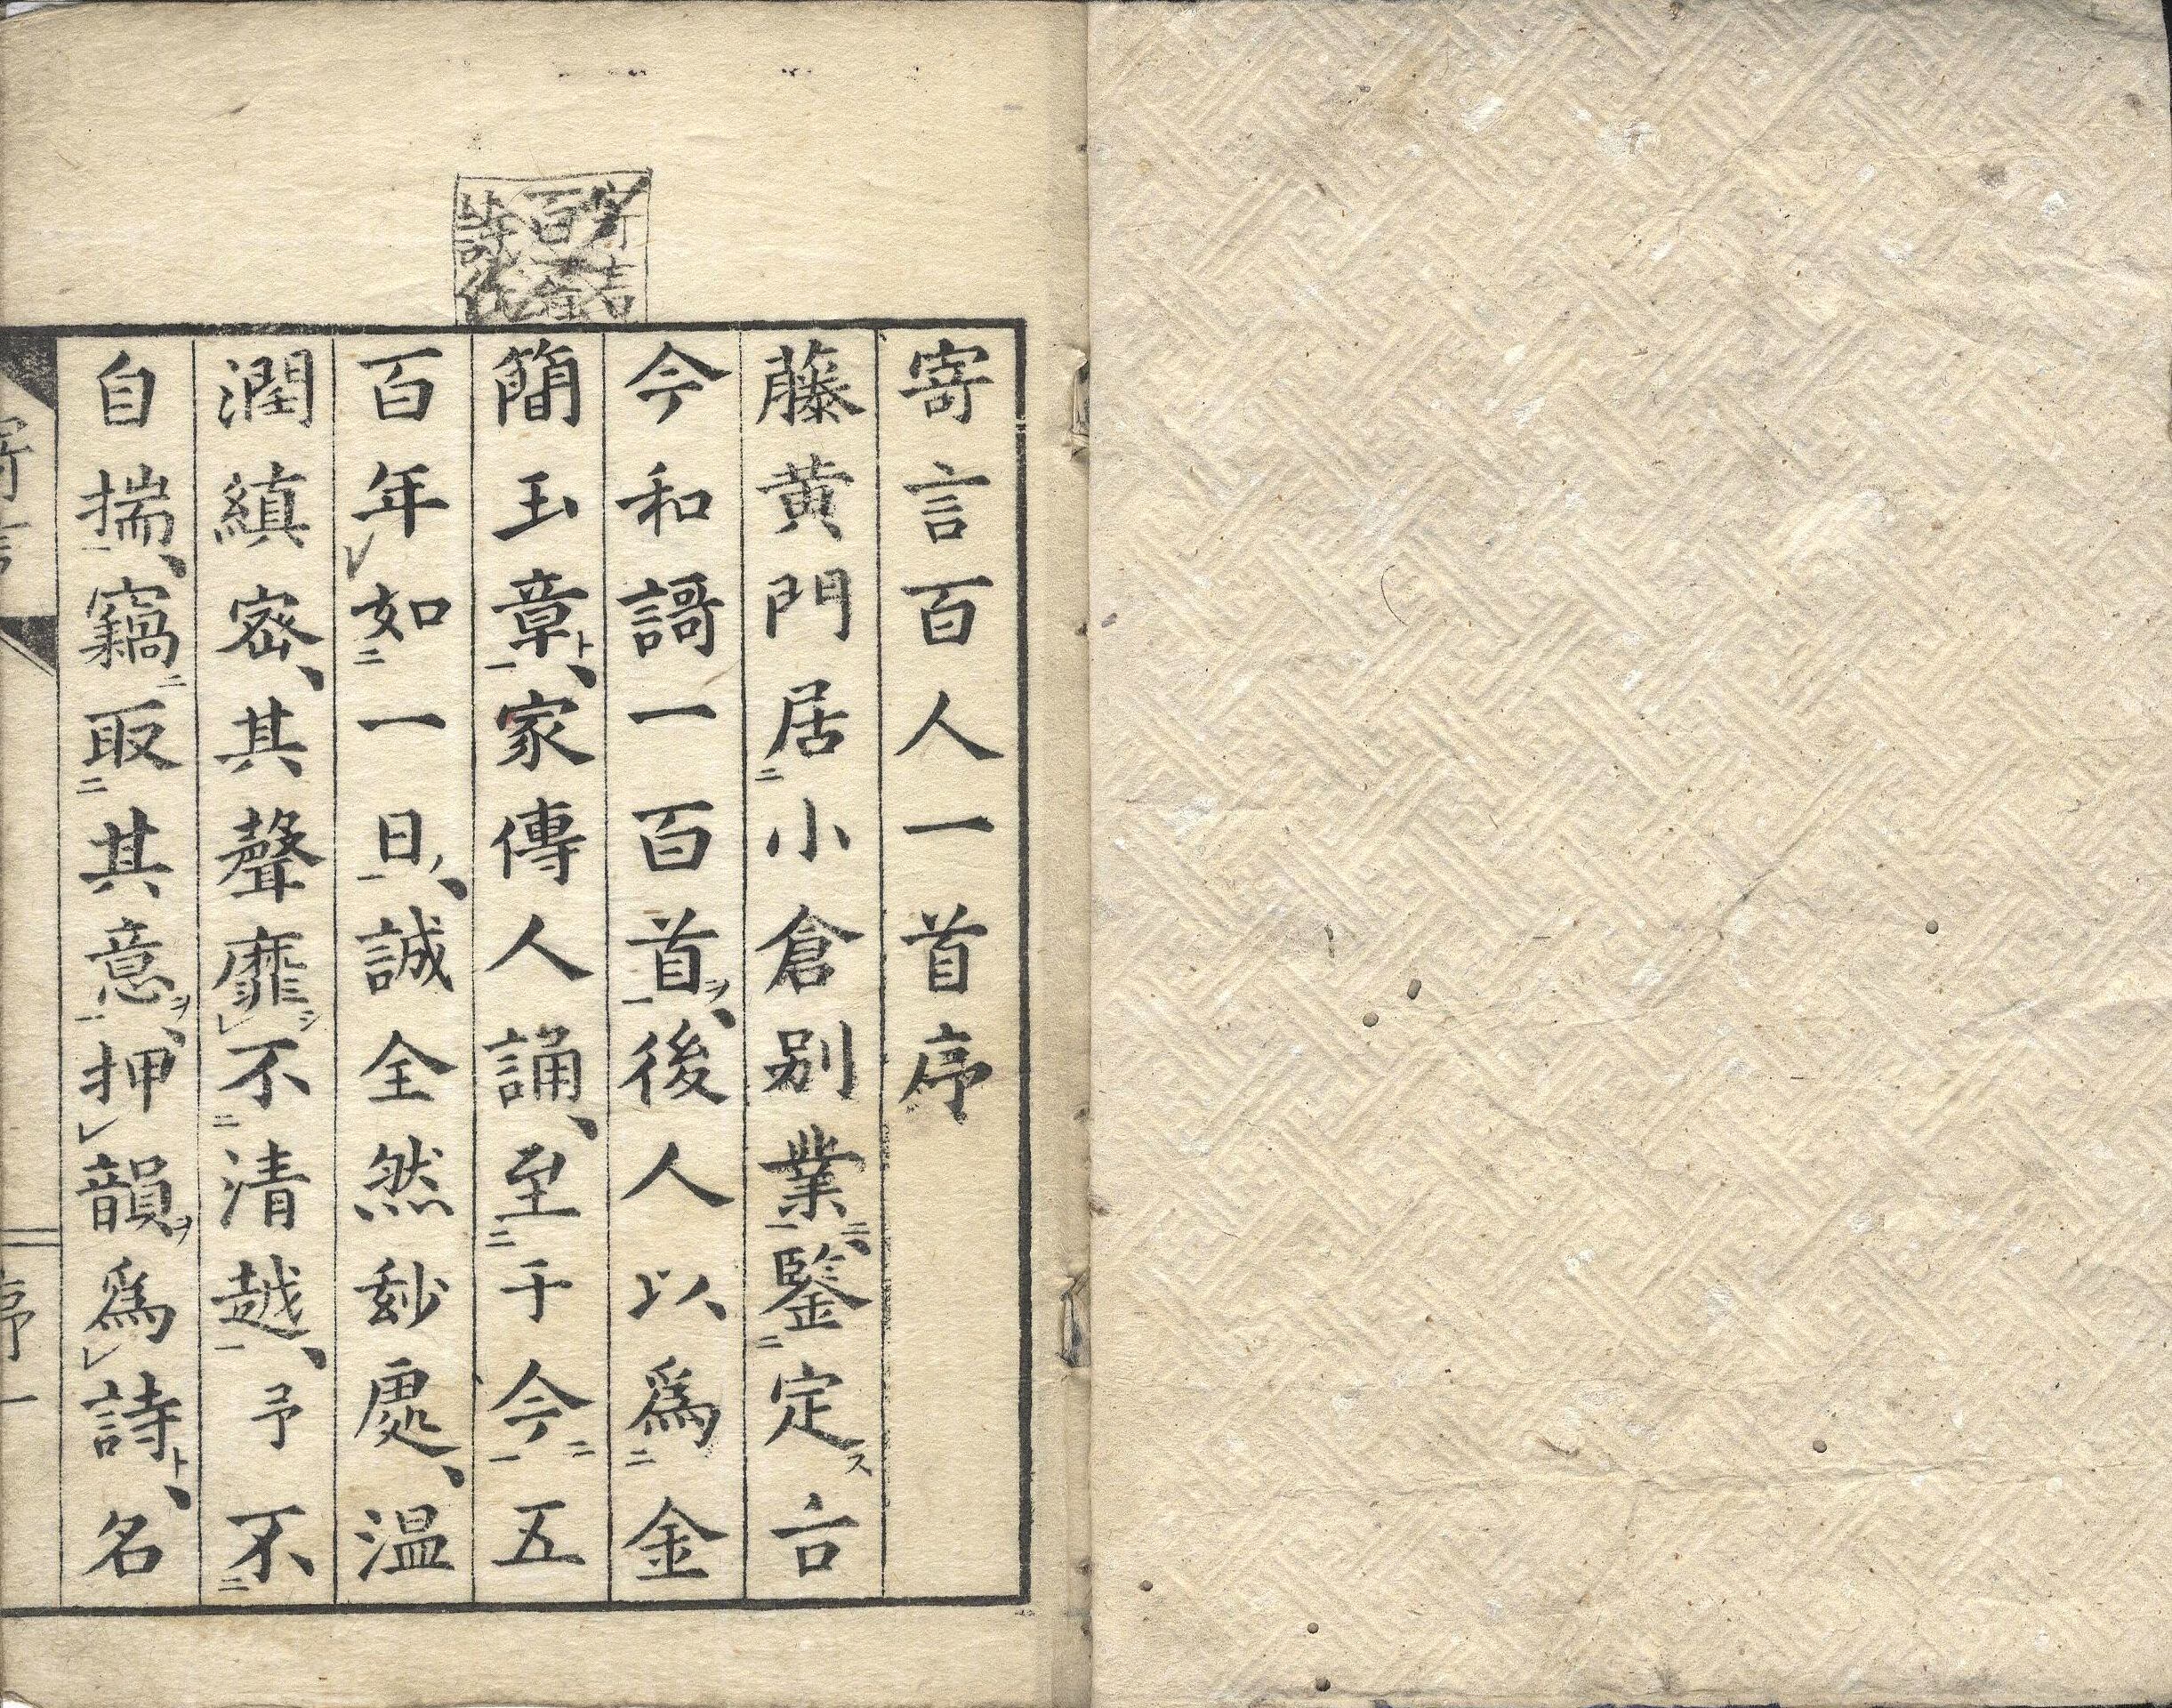 寄言百人一首序
藤黄門居小倉别業鑒定古
今和謌一百首後人以爲金
簡玉章家傳人誦至于今五
百年如一日誠全然玅處温
潤縝宻其聲靡不清越予不
自揣竊取其意押韻爲詩名